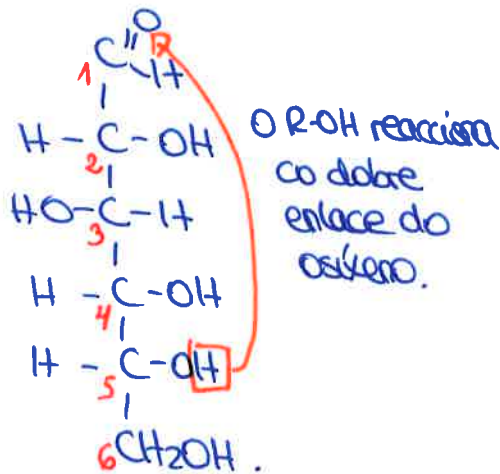 O
C
1
H
H - C - OH
2
HO - C - H
3
H - C - OH
4
H - C - OH
5
6 CH2OH.
O R-OH reacciona
co dobre
enlace do
osíxeno.